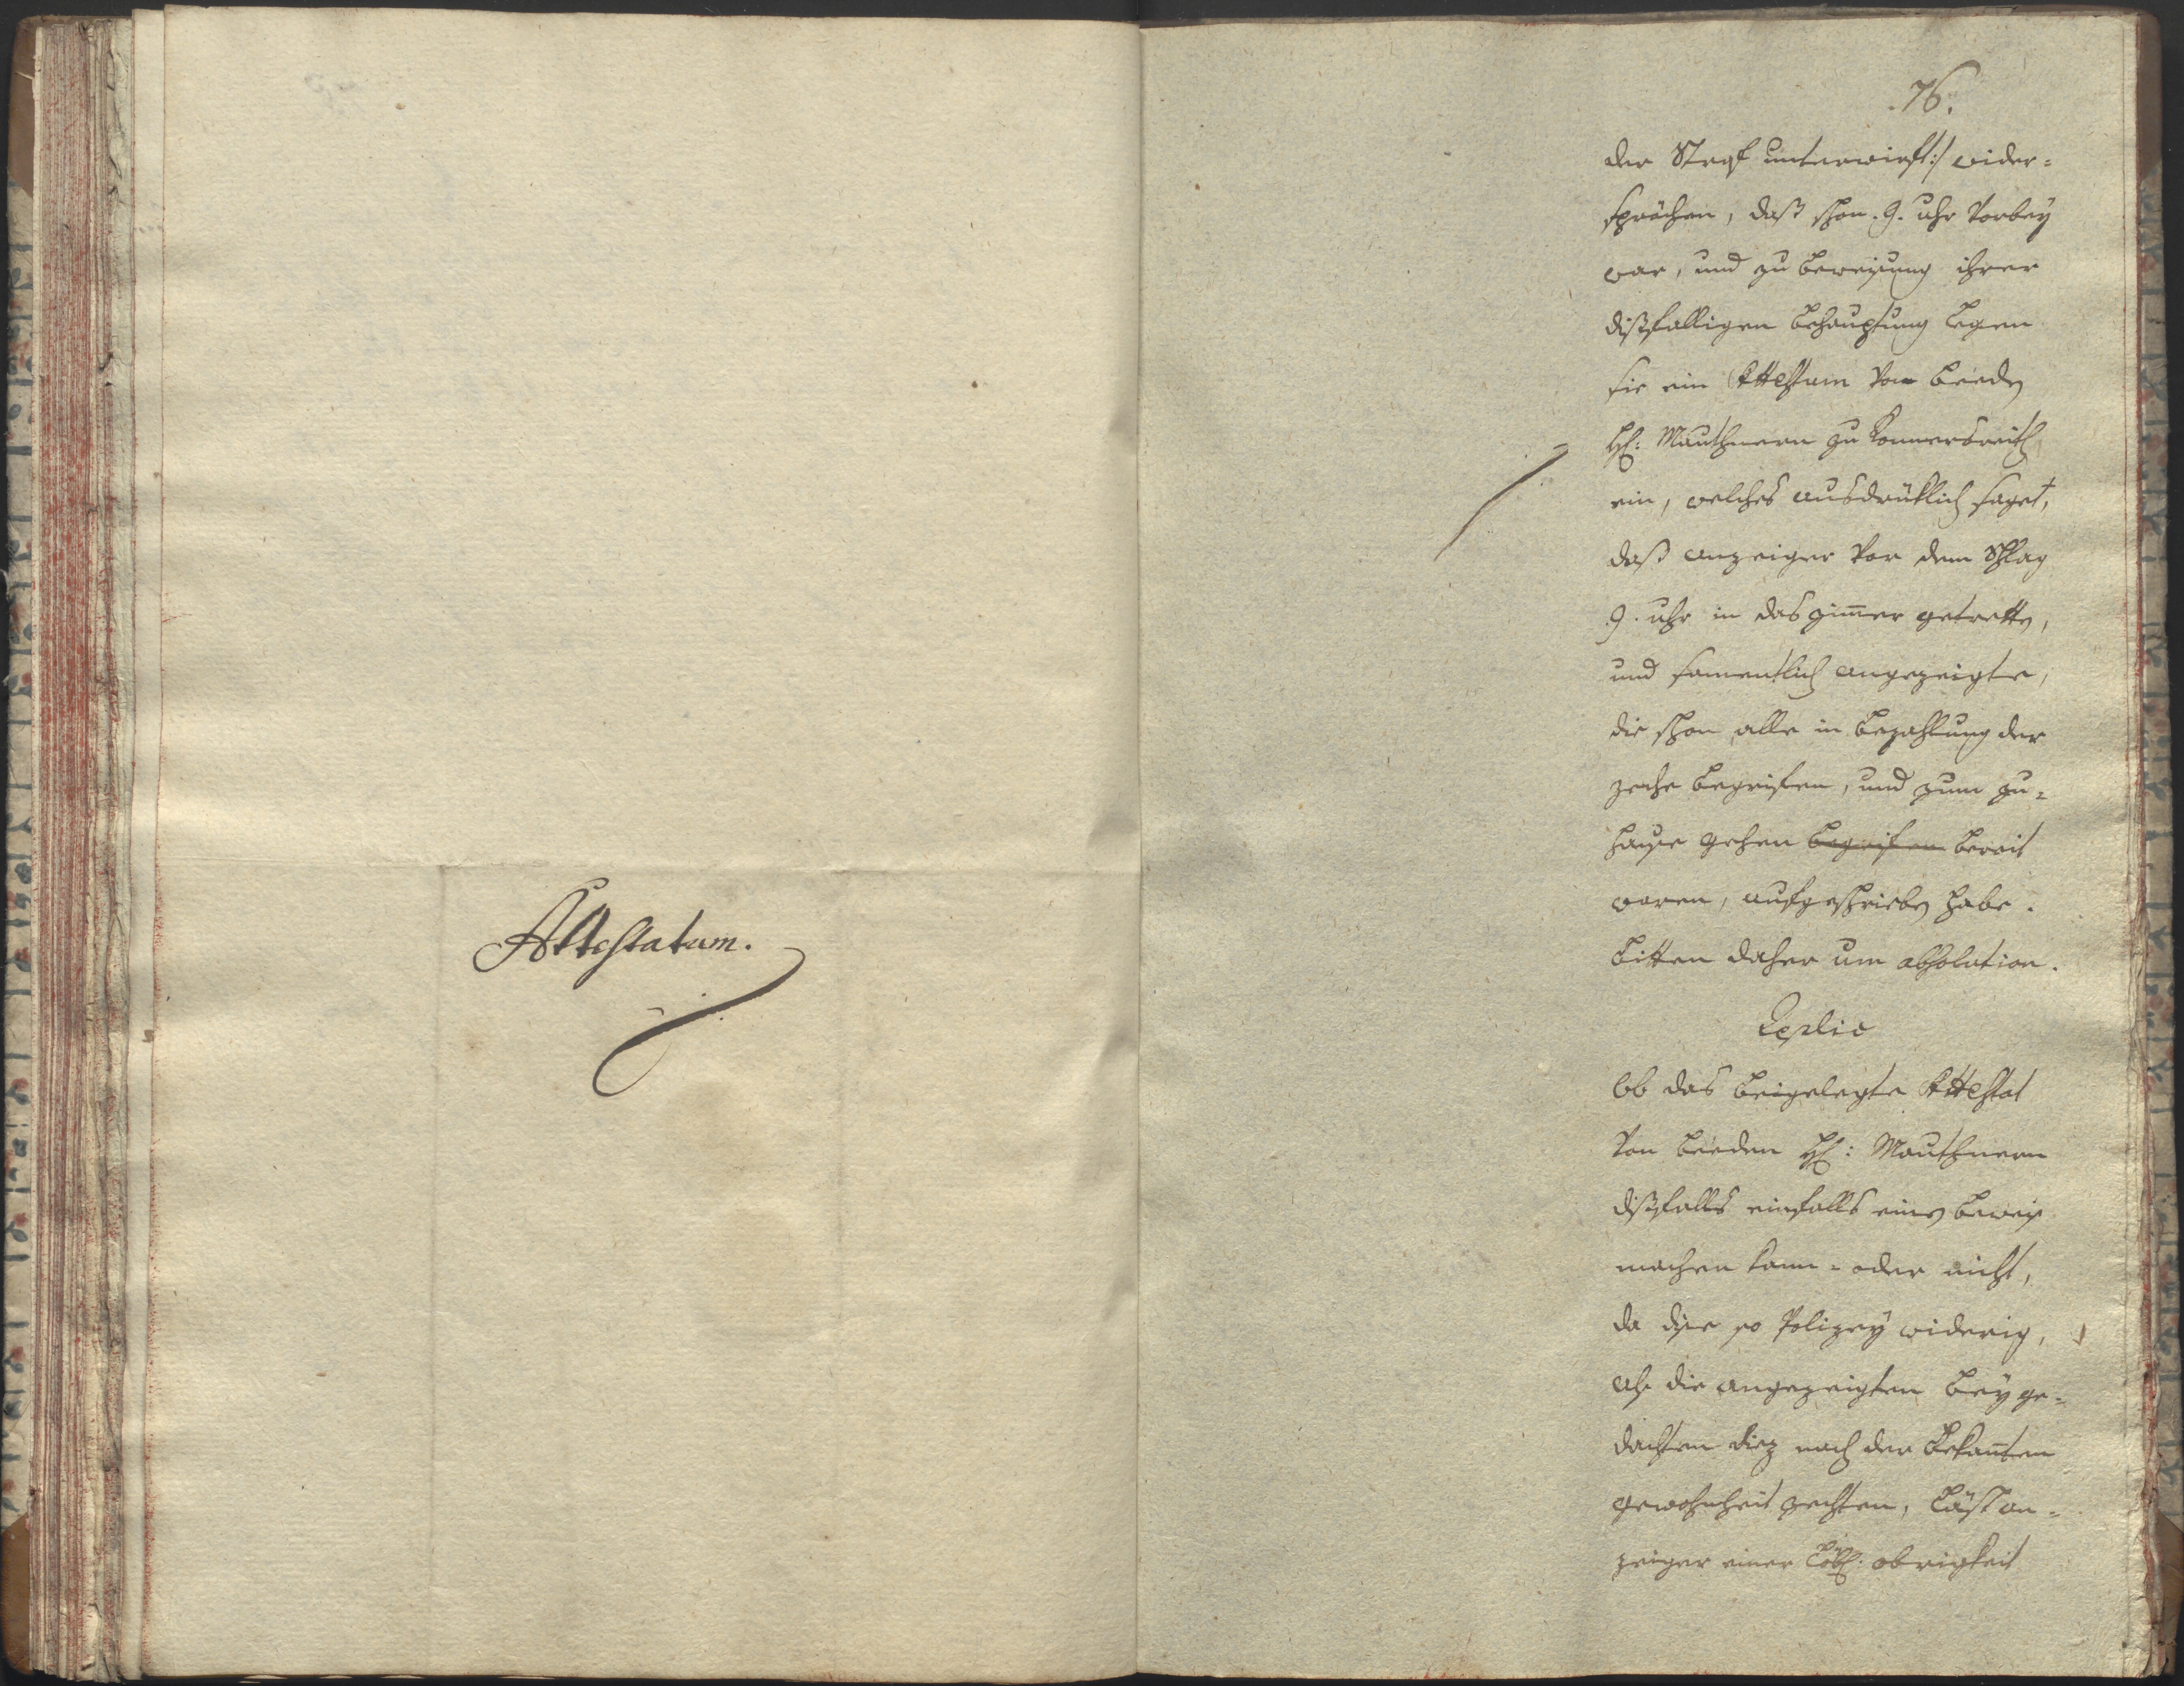 Attestatum.
.76.
der Straf unterwirft :/ wider-
sprächen, daß schon .9. uhr vorbey
war, und zu beweisung ihrer
dißfalligen behauptung legen
sie ein Attestum von beeden
H: Mauthnern zu Konnersreith
ein, welches ausdrüklich saget,
daß anzeiger vor dem Schlag
.9. uhr in das zimmer getretten,
und samentlich angezeigte,
die schon alle in bezahlung der
zeche begrifen, und zum zu-
hause gehen begrifen bereit
waren, aufgeschrieben habe.
bitten daher um absolution.
Replic
Ob das beigelegte Attestat
von beeden H: Mauthnern
dißfalls einen beweis
machen kann = oder nicht,
da diese so Polizey widerig,
als die angezeigten bey ge-
dachten Diez nach der bekanten
gewohnheit zechten, läst an-
zeiger einer Löbl: obrigkeit